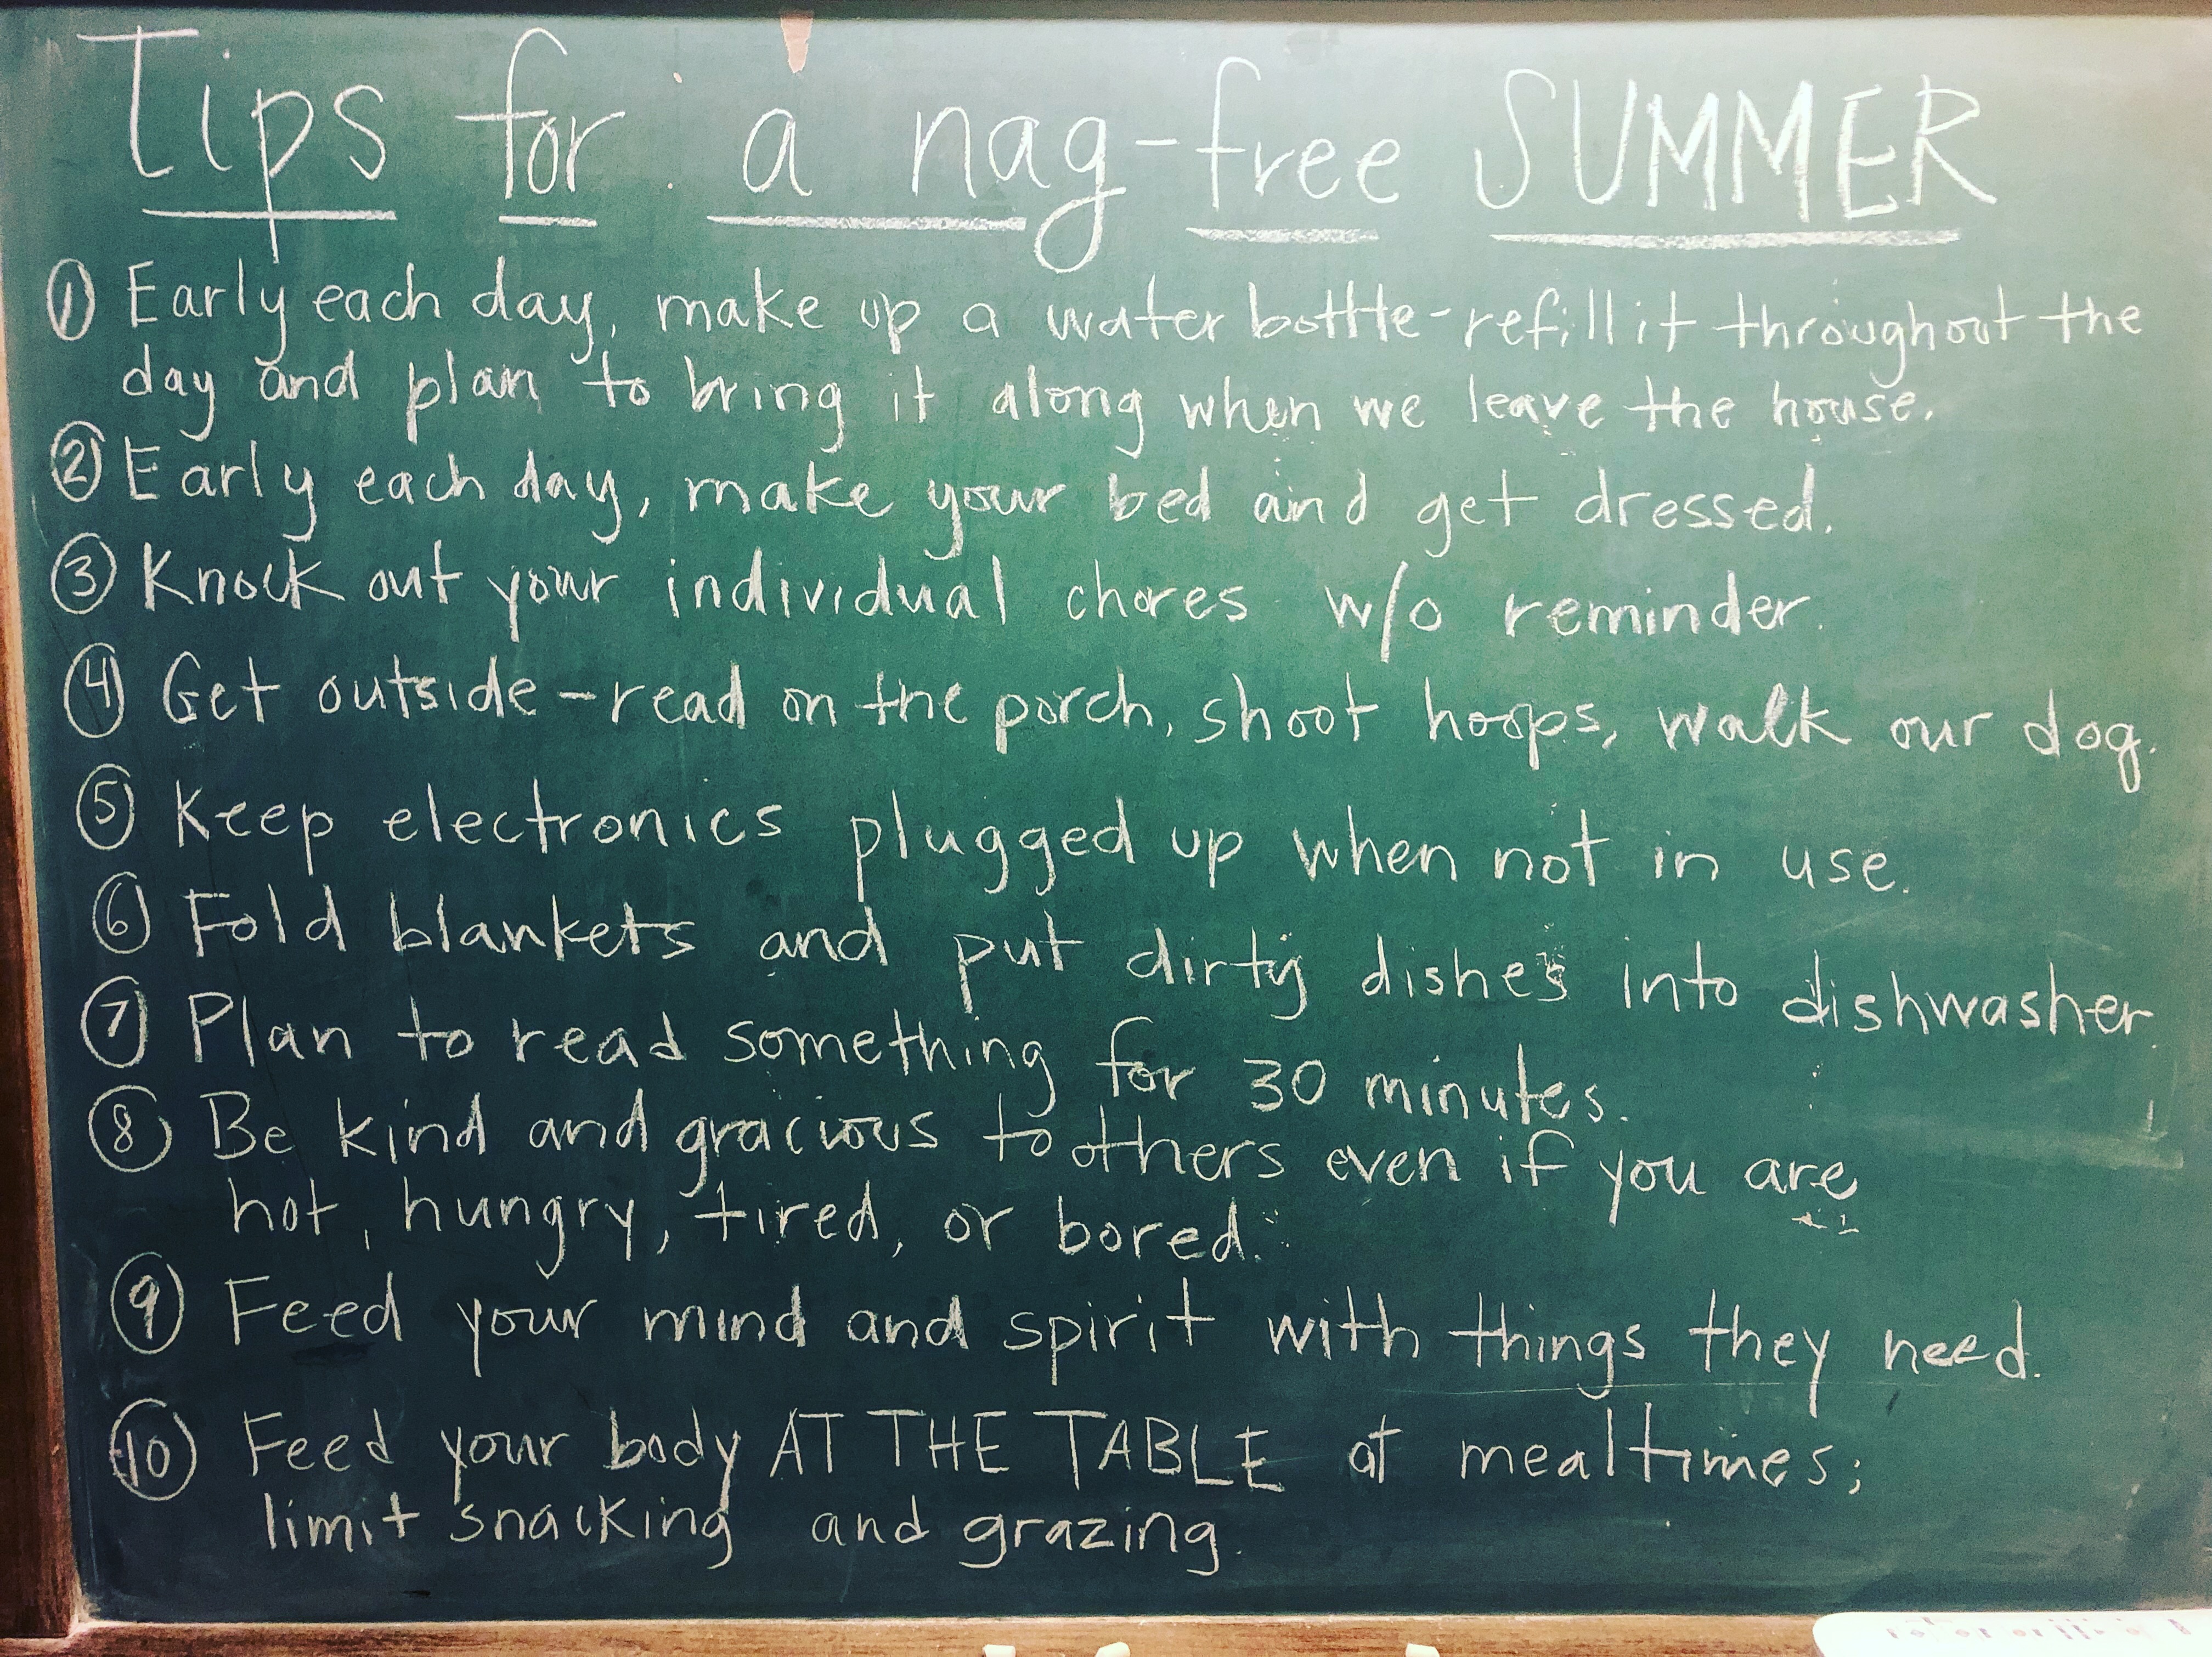 Tips for a nag-free SUMMER
① Early each day, make up a water bottle-refill it throughout the
day and plan to bring it along when we leave the house.
② Early each day, make your bed and get dressed.
③ Knock out your individual chores w/o reminder.
④ Get outside-read on the porch, shoot hoops, walk our dog.
⑤ Keep electronics plugged up when not in use.
⑥ Fold blankets and put dirty dishes into dishwasher.
⑦ Plan to read something for 30 minutes.
⑧ Be kind and gracious to others even if you are
hot, hungry, tired, or bored.
⑨ Feed your mind and spirit with things they need.
⑩ Feed your body AT THE TABLE at mealtimes;
limit snacking and grazing.